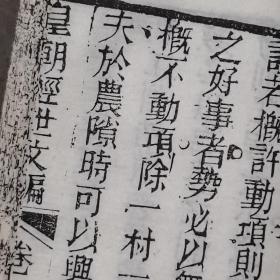 若概許動項則
之好事者勢必以
概不動項除一村一
夫於農隙時可以興
皇朝經世文編
卷